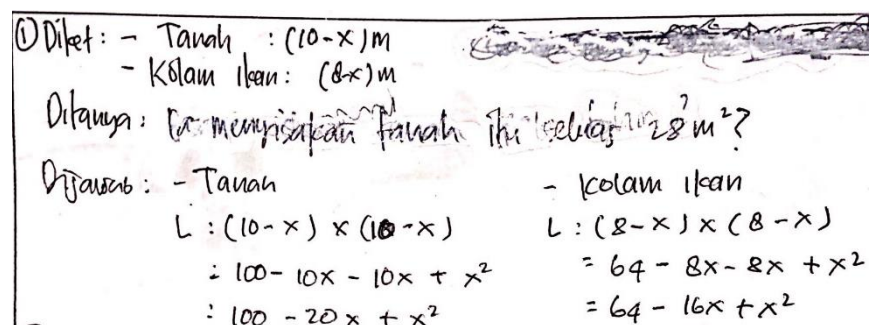 ① Diket : - Tanah : (10-x)m
- Kolam Ikan : (8-x)m
Ditanya : menyisakan tanah itu seluas 28 m²?
Dijawab : - Tanah
L : (10-x) x (10-x)
= 100 - 10x - 10x + x²
= 100 - 20x + x²
- Kolam Ikan
L : (8-x) x (8-x)
= 64 - 8x - 8x + x²
= 64 - 16x + x²